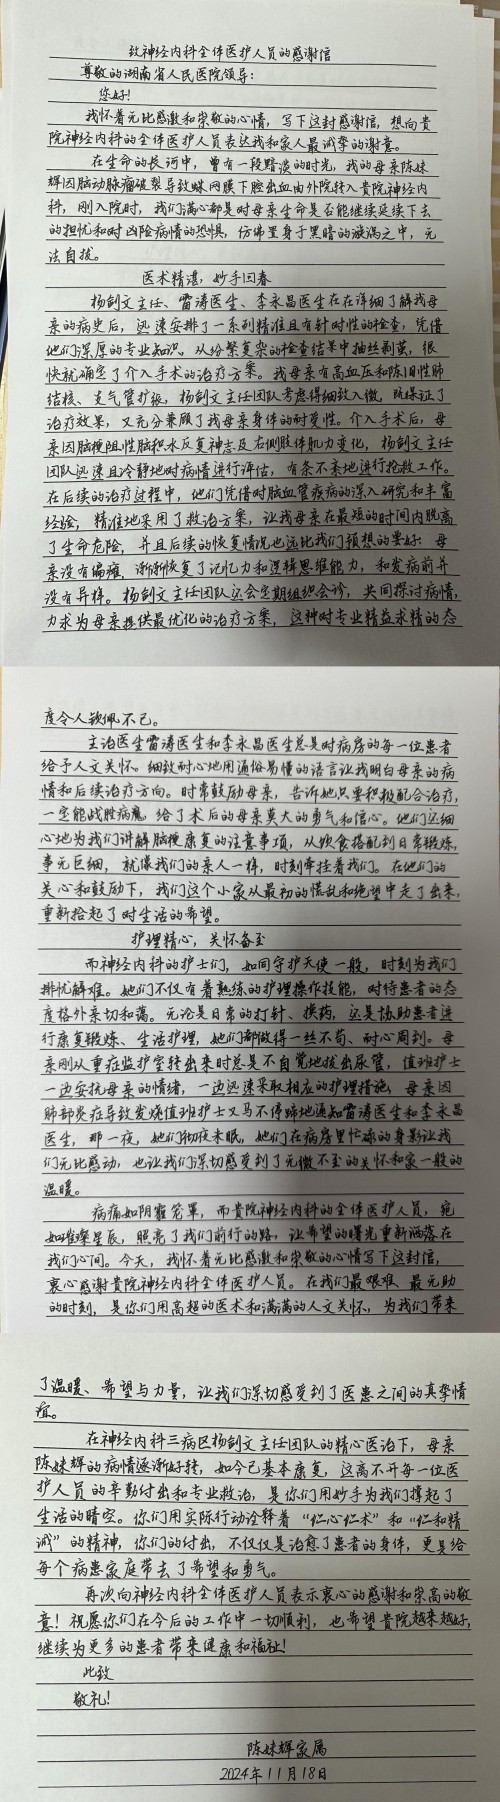 致神经内科全体医护人员的感谢信
尊敬的湖南省人民医院领导:
您好!
我怀着无比感激和崇敬的心情,写下这封感谢信,想向贵
院神经内科的全体医护人员表达我和家人最诚挚的谢意。
在生命的长河中,曾有一段黯淡的时光,我的母亲陈妹
辉因脑动脉瘤破裂导致蛛网膜下腔出血由外院转入贵院神经内
科,刚入院时,我们满心都是对母亲生命是否能继续延续下去
的担忧和对凶险病情的恐惧,仿佛置身于黑暗的漩涡之中,无
法自拔。
医术精湛,妙手回春
杨剑文主任、雷涛医生、李永昌医生在在详细了解我母
亲的病史后,迅速安排了一系列精准且有针对性的检查,凭借
他们深厚的专业知识。从纷繁复杂的检查结果中抽丝剥茧,很
快就确定了介入手术的治疗方案。我母亲有高血压和陈旧性肺
结核、支气管扩张,杨剑文主任团队考虑得细致入微,既保证了
治疗效果,又充分兼顾了我母亲身体的耐受性。介入手术后,母
亲因脑梗阻性脑积水反复神志及右侧肢体肌力变化,杨剑文主任
团队迅速且冷静地对病情进行评估,有条不紊地进行抢救工作。
在后续的治疗过程中,他们凭借对脑血管疾病的深入研究和丰富
经验,精准地采用了救治方案,让我母亲在最短的时间内脱离
了生命危险,并且后续的恢复情况也远比我们预想的要好:母
亲没有偏瘫,渐渐恢复了记忆力和逻辑思维能力,和发病前并
没有异样。杨剑文主任团队还会定期组织会诊,共同探讨病情,
力求为母亲提供最优化的治疗方案,这种对专业精益求精的态
度令人钦佩不已。
主治医生雷涛医生和李永昌医生总是对病房的每一位患者
给予人文关怀。细致耐心地用通俗易懂的语言让我明白母亲的病
情和后续治疗方向。时常鼓励母亲,告诉她只要积极配合治疗,
一定能战胜病魔,给了术后的母亲莫大的勇气和信心。他们还细
心地为我们讲解脑梗康复的注意事项,从饮食搭配到日常锻炼,
事无巨细,就像我们的亲人一样,时刻牵挂着我们。在他们的
关心和鼓励下,我们这个小家从最初的慌乱和绝望中走了出来,
重新拾起了对生活的希望。
护理精心,关怀备至
而神经内科的护士们,如同守护天使一般,时刻为我们
排忧解难。她们不仅有着熟练的护理操作技能,对待患者的态
度格外亲切和蔼。无论是日常的打针、换药,还是协助患者进
行康复锻炼、生活护理,她们都做得一丝不苟、耐心周到。母
亲刚从重症监护室转出来时总是不自觉地拔出尿管,值班护士
一边安抚母亲的情绪,一边迅速采取相应的护理措施,母亲因
肺部炎症导致发烧值班护士又马不停蹄地通知雷涛医生和李永昌
医生,那一夜,她们彻夜未眠,她们在病房里忙碌的身影让我
们无比感动,也让我们深切感受到了无微不至的关怀和家一般的
温暖。
病痛如阴霾笼罩,而贵院神经内科的全体医护人员,宛
如璀璨星辰,照亮了我们前行的路,让希望的曙光重新洒落在
我们心间。今天,我怀着无比感激和崇敬的心情写下这封信,
衷心感谢贵院神经内科全体医护人员。在我们最艰难、最无助
的时刻,是你们用高超的医术和满满的人文关怀,为我们带来
了温暖、希望与力量,让我们深切感受到了医患之间的真挚情
谊。
在神经内科三病区杨剑文主任团队的精心医治下,母亲
陈妹辉的病情逐渐好转,如今已基本康复,这离不开每一位医
护人员的辛勤付出和专业救治,是你们用妙手为我们撑起了
生活的晴空。你们用实际行动诠释着“仁心仁术”和“仁和精
诚”的精神,你们的付出,不仅仅是治愈了患者的身体,更是给
每个病患家庭带去了希望和勇气。
再次向神经内科全体医护人员表示衷心的感谢和崇高的敬
意!祝愿你们在今后的工作中一切顺利,也希望贵院越来越好,
继续为更多的患者带来健康和福祉!
此致
敬礼!
陈妹辉家属
2024年11月18日